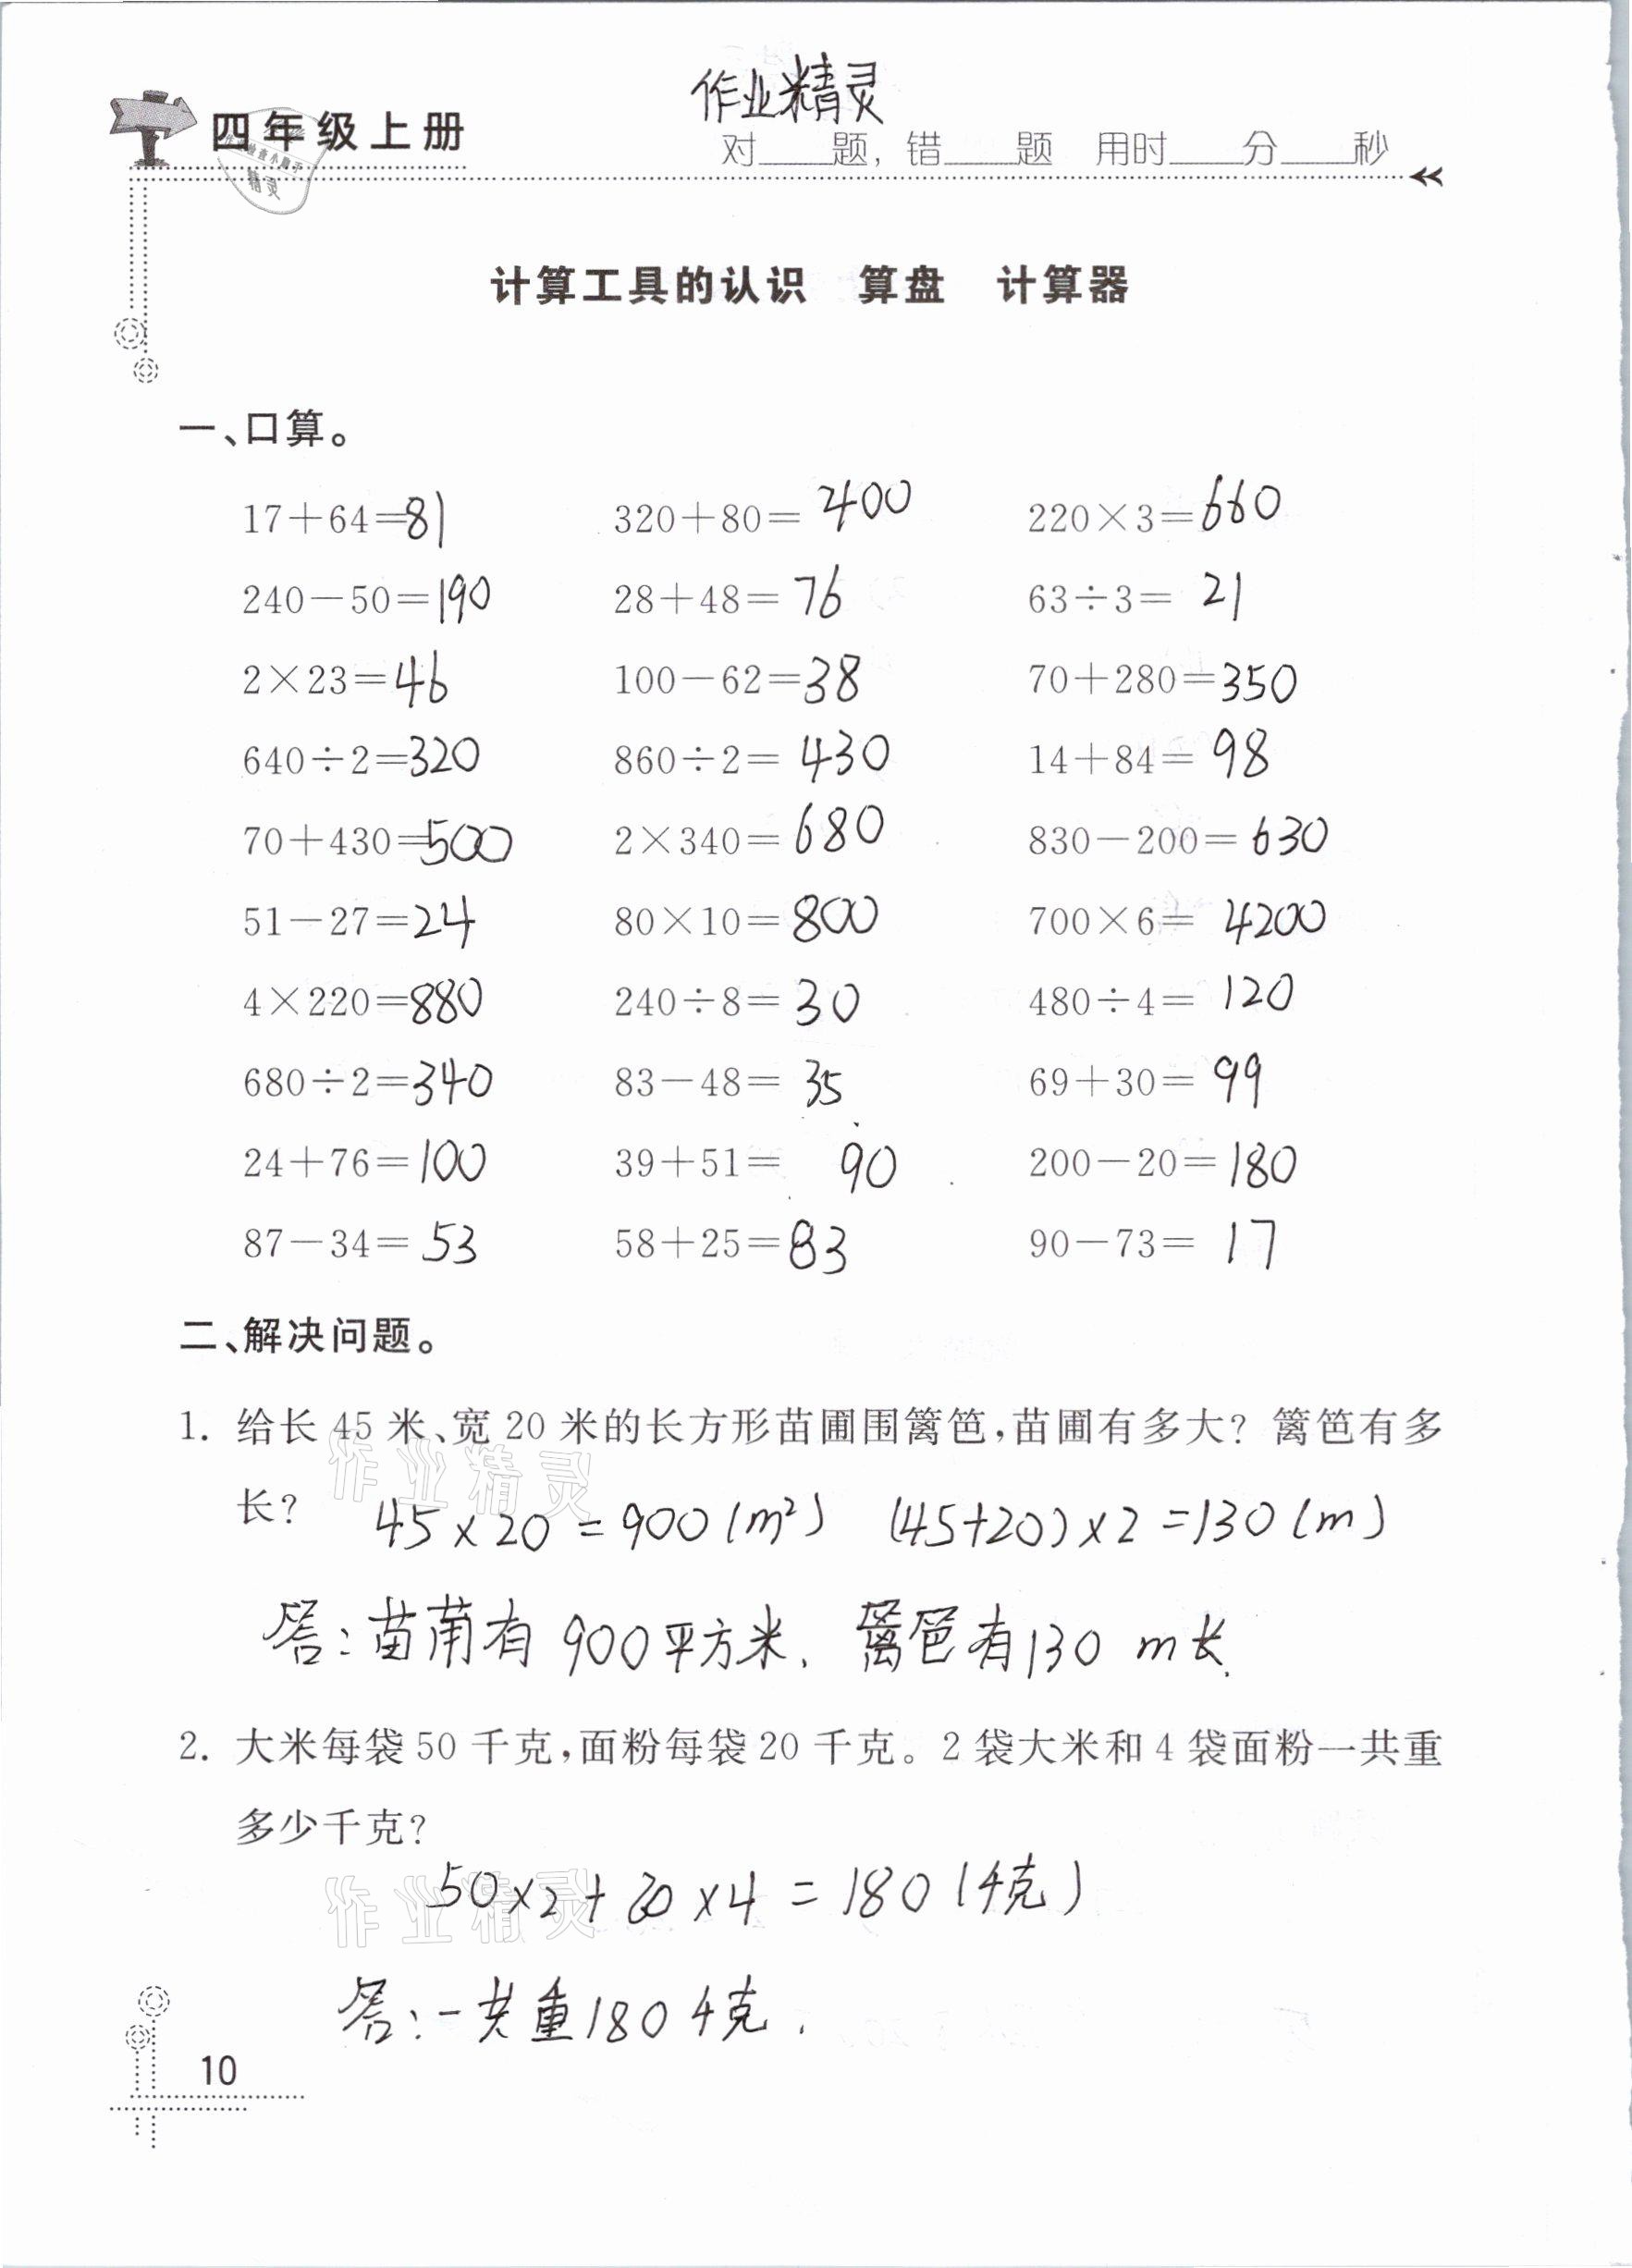 作业精灵
四年级上册
对____题,错____题 用时____分____秒
计算工具的认识 算盘 计算器
一、口算。
17+64=81 320+80=400 220×3=660
240-50=190 28+48=76 63÷3=21
2×23=46 100-62=38 70+280=350
640÷2=320 860÷2=430 14+84=98
70+430=500 2×340=680 830-200=630
51-27=24 80×10=800 700×6=4200
4×220=880 240÷8=30 480÷4=120
680÷2=340 83-48=35 69+30=99
24+76=100 39+51=90 200-20=180
87-34=53 58+25=83 90-73=17
二、解决问题。
1. 给长 45 米、宽 20 米的长方形苗圃围篱笆,苗圃有多大? 篱笆有多
长?
45×20=900(m²) (45+20)×2=130(m)
答:苗莆有 900平方米. 篱笆有130 m长.
2. 大米每袋 50 千克,面粉每袋 20 千克。2 袋大米和 4 袋面粉一共重
多少千克?
50×2+20×4=180(千克)
答:一共重180千克.
10
作业精灵
作业精灵